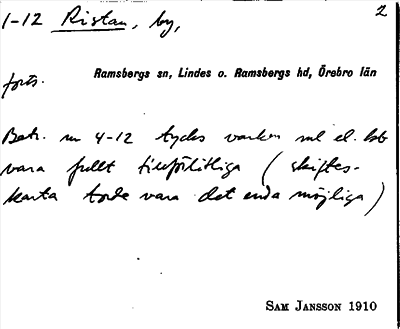 1-12 Ristan, by, 2
Ramsbergs sn, Lindes o. Ramsbergs hd, Örebro län
forts.
Betr. nr 4-12 tycks varken ml el. hb
vara fullt tillförlitliga (skiftes-
karta torde vara det enda möjliga)
SAM JANSSON 1910